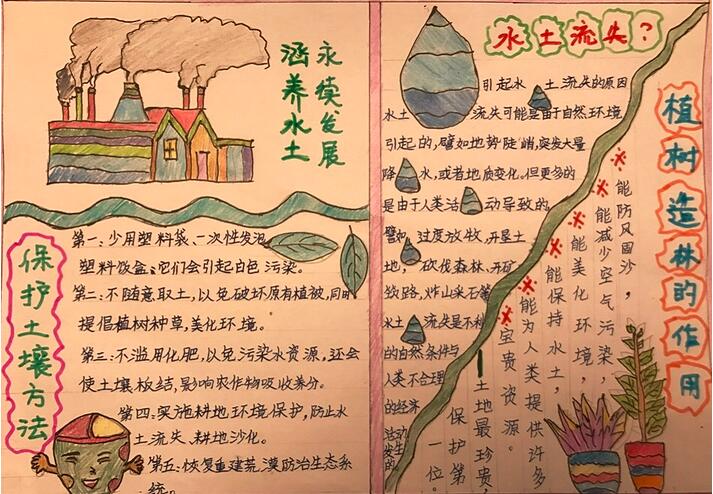 永续发展
涵养水土
保护土壤方法
第一:少用塑料袋、一次性发泡
塑料饭盒、它们会引起白色污染。
第二:不随意取土,以免破坏原有植被,同时
提倡植树种草,美化环境。
第三:不滥用化肥,以免污染水资源,还会
使土壤板结,影响农作物吸收养分。
第四:实施耕地环境保护,防止水
土流失、耕地沙化。
第五:恢复重建荒漠防治生态系
统。
水土流失?
引起水土流失的原因
水土流失可能是由于自然环境
引起的,譬如地势陡峭,突发大量
降水,或者地质变化。但更多的
是由于人类活动导致的,
譬如,过度放牧,开垦土
地,砍伐森林、开矿
铁路,炸山采石等
水土流失是不利
的自然条件与
人类不合理
的经济
活动
发生的
植树造林的作用
能防风固沙,
能减少空气污染,
能美化环境,
能保持水土,
能为人类提供许多
宝贵资源。
土地最珍贵,
保护第
一位。